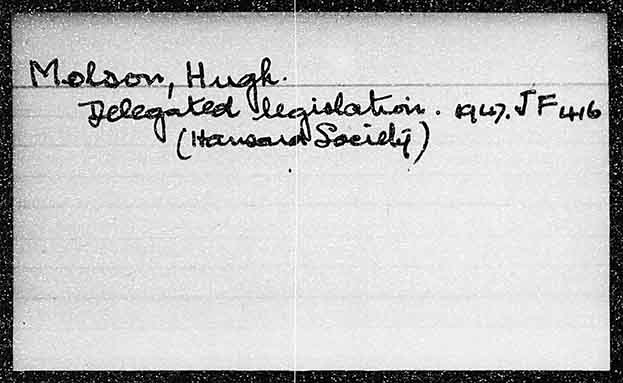 Molson, Hugh.
Delegated legislation. 1947. JF 416
(Hansard Society)